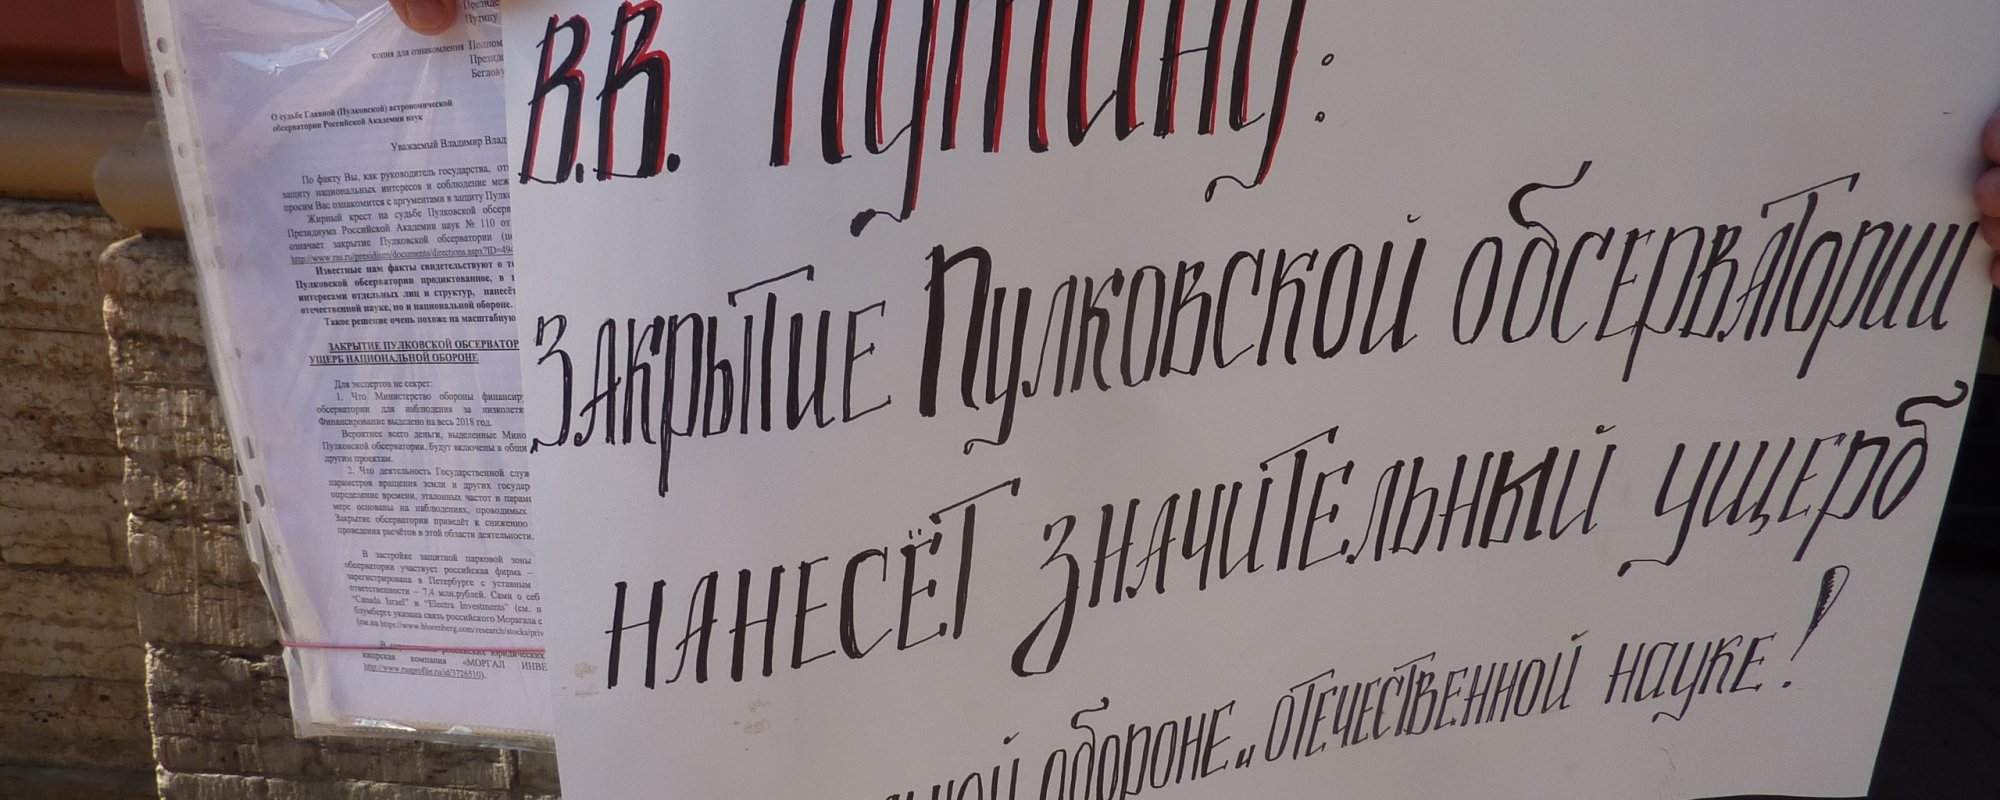 Путину
копия для ознакомления
Беглову
О судьбе Главной (Пулковской) астрономической
обсерватории Российской Академии наук
Уважаемый Владимир Влад
По факту Вы, как руководитель государства, от
защиту национальных интересов и соблюдение меж
просим Вас ознакомится с аргументами в защиту Пулко
Жирный крест на судьбе Пулковской обсерв
Президиума Российской Академии наук № 110 от
означает закрытие Пулковской обсерватории (по
http://www.ras.ru/presidium/documents/directions.aspx?ID=494
Известные нам факты свидетельствуют о то
Пулковской обсерватории продиктованное, в
интересами отдельных лиц и структур, нанесёт
отечественной науке, но и национальной обороне.
Такое решение очень похоже на масштабную
ЗАКРЫТИЕ ПУЛКОВСКОЙ ОБСЕРВАТОР
УЩЕРБ НАЦИОНАЛЬНОЙ ОБОРОНЕ
Для экспертов не секрет:
1. Что Министерство обороны финансир
обсерватории для наблюдения за низколетя
Финансирование выделено на весь 2018 год.
Вероятнее всего деньги, выделенные Мино
Пулковской обсерватории, будут включены в общи
другим проектам.
2. Что деятельность Государственной служ
параметров вращения земли и других государ
определение времени, эталонных частот и парам
мере основаны на наблюдениях, проводимых
Закрытие обсерватории приведёт к снижению
проведения расчётов в этой области деятельности.
В застройке защитной парковой зоны
обсерватории участвует российская фирма –
зарегистрирована в Петербурге с уставным
ответственности – 7,4 млн.рублей. Сами о себ
"Canada Israel" и "Electra Investments" (см. н
блумберге указана связь российского Морагала с
(см.на https://www.bloomberg.com/research/stocks/priv
российских юридических
кипрская компания «МОРГАЛ ИНВЕ
http://www.rusprofile.ru/id/3726510).
В.В. Путину:
Закрытие Пулковской обсерватории
нанесёт значительный ущерб
ьной обороне и отечественной науке!